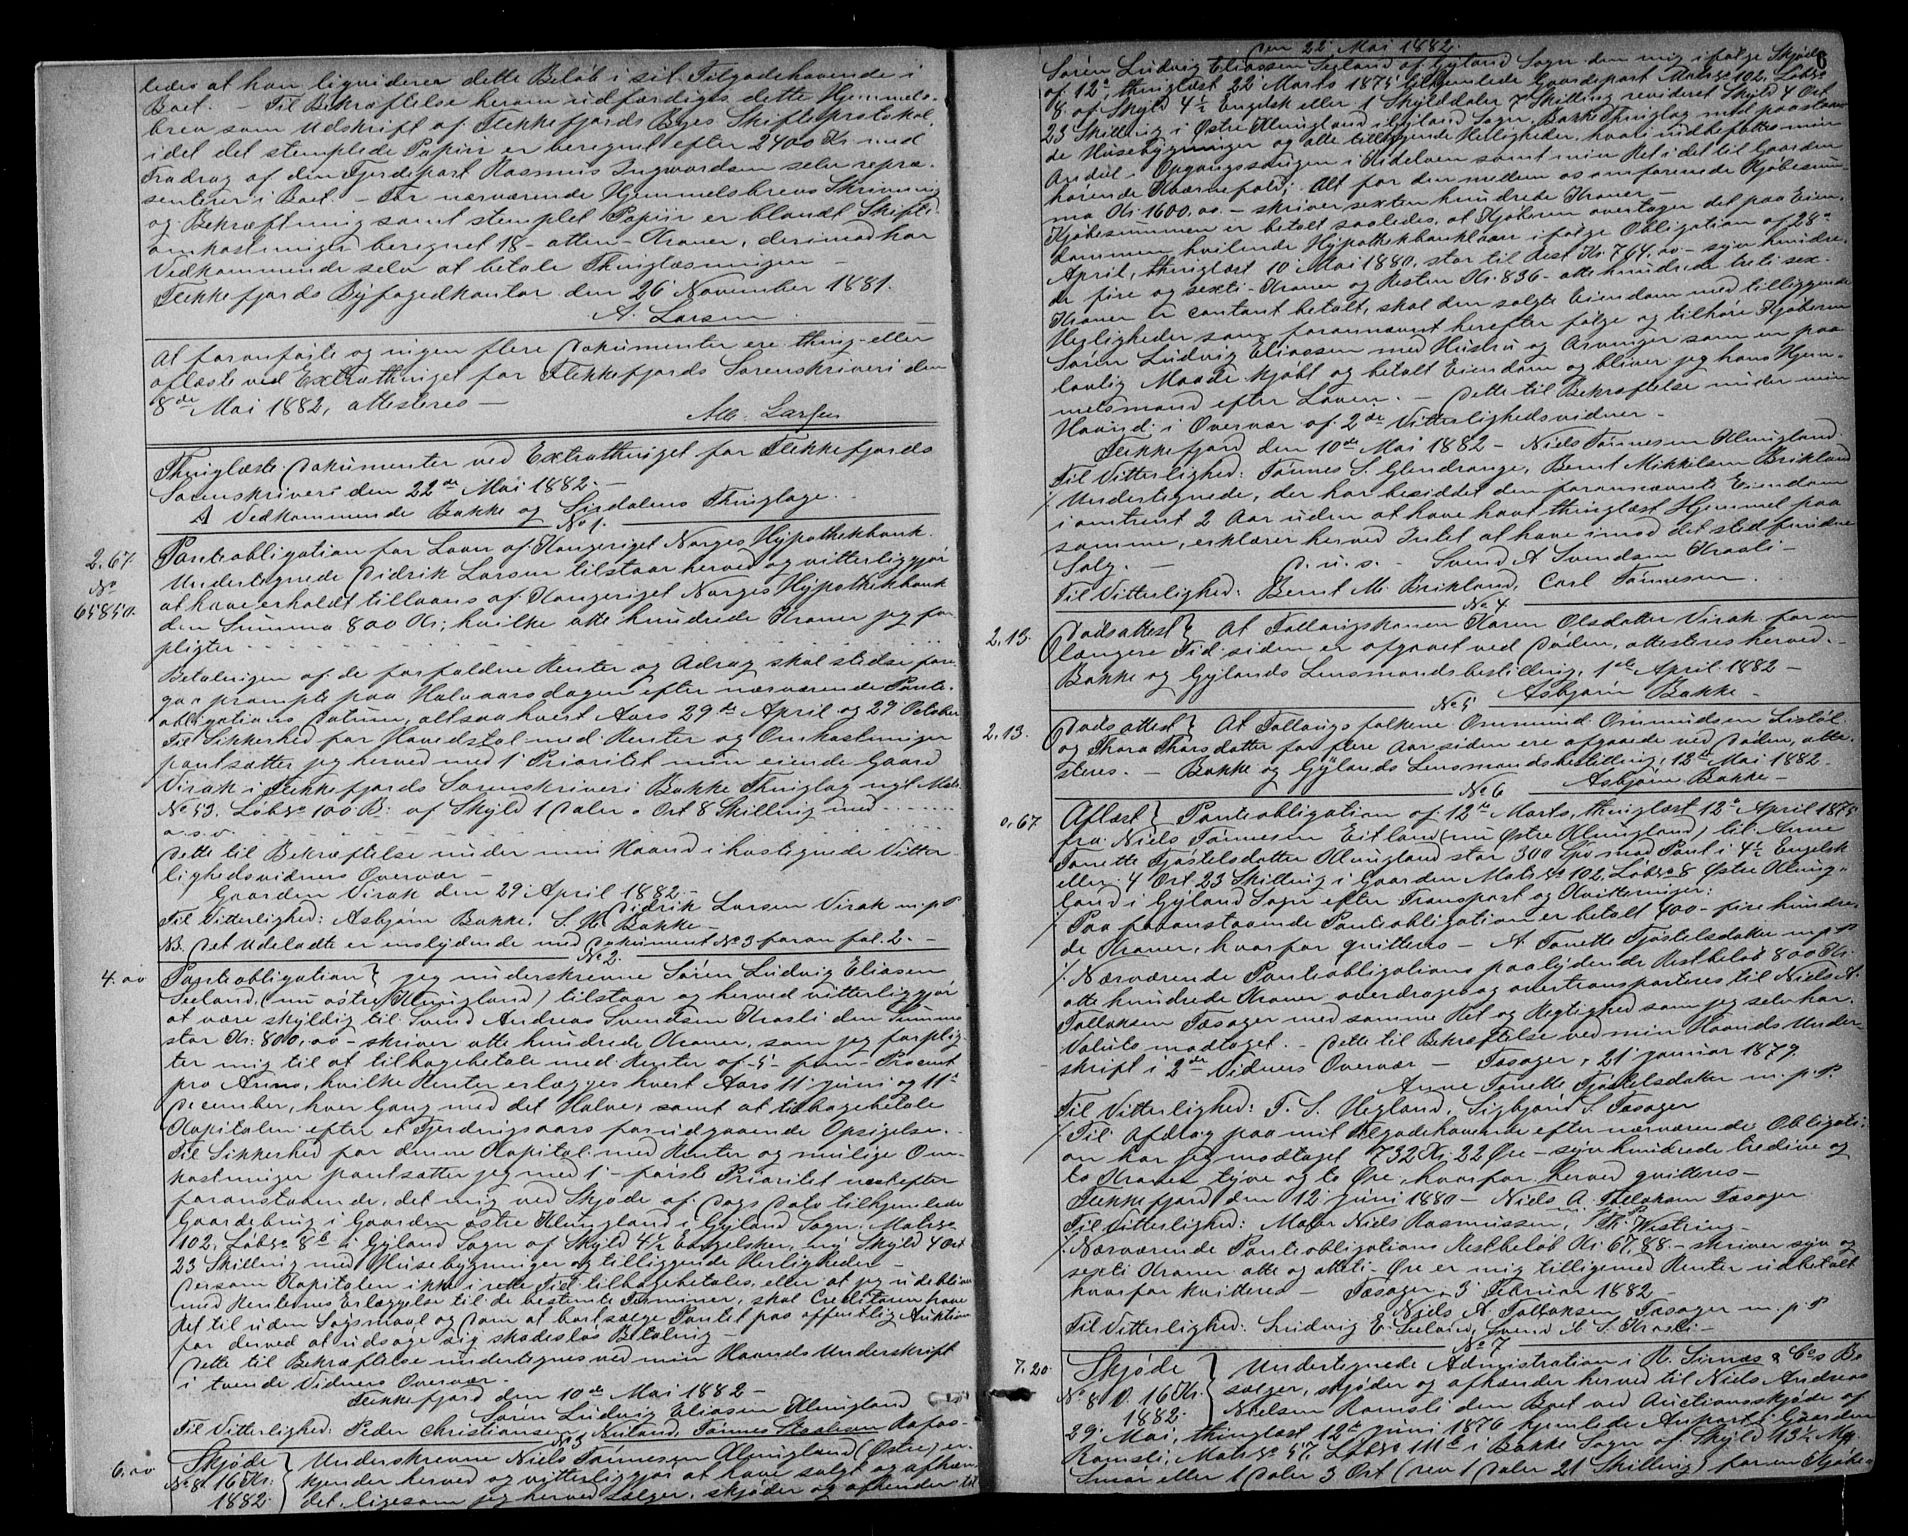 ledes at han liqviderer dette Beløb i sit Tilgodehavende i
Boet. — Til Bekræftelse herom udfærdiges dette Hjemmels-
brev som Udskrift af Flekkefjords Byes Skifteprotokol,
idet det stemplede Papir er beregnet efter 2400 Kr med
Fradrag af den Fjerdepart Rasmus Ingwardsen selv repræ-
senterer i Boet. — For nærværende Hjemmelsbrevs Skrivning
og Bekræftning samt stemplet Papir er blandt Skifte-
omkostninger beregnet 18 - atten - Kroner, derimod har
Vedkommende selv at betale Thinglæsningen —
Flekkefjords Byfogedkontor den 26 November 1881.
A. Larsen
At foranførte og ingen flere Dokumenter ere thing- eller
aflæste ved Extrathinget for Flekkefjords Sorenskriveri den
8de Mai 1882, attesteres —
Alb. Larsen
Thinglæste Dokumenter ved Extrathinget for Flekkefjords
Sorenskriveri den 22de Mai 1882. —
A Vedkommende Bakke og Sirdalens Thinglage.
No 1.
2.67.
No
65850.
Panteobligation for Laan af Kongeriget Norges Hypothekbank.
Undertegnede Didrik Larsen tilstaar herved og vitterliggjør
at have erholdt tillaans af Kongeriget Norges Hypothekbank
den Summa 800 Kr; hvilke otte hundrede Kroner jeg for-
pligter
Betalingen af de forfaldne Renter og Afdrag skal stedse fore-
gaa prompte paa Halvaarsdagen efter nærværende Pante-
obligations Datum, altsaa hvert Aars 29de April og 29 October
Til Sikkerhed for Hovedstol med Renter og Omkostninger
pantsætter jeg herved med 1 Prioritet min eiende Gaard
Virak i Flekkefjords Sorenskriveri Bakke Thinglag nyt Matr.
No 53. Løbno 100 B: af Skyld 1 Daler o Ort 8 Skilling med
o.s.v.
Dette til Bekræftelse under min Haand i hostegnede Vitter-
lighedsvidners Overvær —
Gaarden Virak den 29 April 1882 —
Didrik Larsen Virak m.p.P.
Til Vitterlighed: Asbjørn Bakke, S. H. Bakke —
NB. Det Udeladte er enslydende med Dokument No 3 foran fol. 2. —
No 2.
4.00
Panteobligation} jeg underskrevne Søren Ludvig Eliasen
Seeland, (nu østre Klungland) tilstaar og herved vitterliggjør
at være skyldig til Svend Andreas Svendsen Kvasli den Summa
stor Kr. 800,00 - skriver otte hundrede Kroner, som jeg forplig-
ter mig til at tilbagebetale med Renter af - 5 - fem - Procent
pro Anno, hvilke Renter erlægges hvert Aars 11 juni og 11te
December, hver Gang med det Halve, samt at tilbagebetale
Kapitalen efter et Fjerdingaars forudgaaende Opsigelse. —
Til Sikkerhed for denne Kapital med Renter og mulige Om-
kostninger pantsætter jeg med 1 - første Prioritet næstefter
foranstaaende, det mig ved Skjøde af Dags Dato tilhjemlede
Gaardebrug i Gaarden østre Klungland i Gyland Sogn, Matrno
102, Løbno 8b i Gyland Sogn af Skyld 4½ Engelsker, ny Skyld 4 Ort
23 Skilling med Husebygninger og tilliggende Herligheder —
Dersom Kapitalen ikke i rette Tid tilbagebetales, eller at jeg udebliver
med Renternes Erlæggelse til de bestemte Terminer, skal Creditoren have
Ret til uden Søgsmaal og Dom at bortsælge Pantet paa offentlig Auktion
for derved at udsøge sig skadesløs Betaling —
Dette til Bekræftelse undertegnes ved min Haands Underskrift
i tvende Vidners Overvær —
Flekkefjord den 10de Mai 1882 —
Søren Ludvig Eliasen Klungland
Til Vitterlighed: Peder Christiansen Neuland, Tønnes
No 3
6.00
Skjøde
No 8. 16 Kr.
1882.
Underskrevne Niels Tønnesen Klungland (Østre) er-
kjender herved og vitterliggjør at have solgt og afhæn-
det, ligesom jeg herved sælger, skjøder og afhender til
Den 22 Mai 1882.
6
Søren Ludvig Eliassen Seeland af Gyland Sogn den mig ifølge Skjøde
af 12te, thinglæst 22 Marts 1875 tilhjemlede Gaardepart Matrno 102, Løbno
8. af Skyld 4½ Engelsk eller 1 Skylddaler 7 Skilling revideret Skyld 4 Ort
23 Skilling i Østre Klungland i Gyland Sogn, Bakke Thinglag med paastaaen-
de Husebygninger og alle tilliggende Herligheder, hvori indbefattes min
Andeel i Opgangssaugen i Kidelven samt min Ret i det til Gaarden
hørende Kværnefald; Alt for den mellem os omforenede Kjøbesum-
ma Kr. 1600,00. — skriver sexten hundrede Kroner —
Kjøbesummen er betalt saaledes, at Kjøberen overtager det paa Eien-
dommen hvilende Hypothekbanklaan ifølge Obligation af 28de
April, thinglæst 10 Mai 1880, stor til Rest Kr. 764,00 - syv hundre-
de fire og sexti - Kroner og Resten Kr. 836 - otte hundrede treti sex
Kroner er contant betalt, skal den solgte Eiendom med tilliggende
Herligheder som forannævnt herefter følge og tilhøre Kjøberen
Søren Ludvig Eliassen med Hustru og Arvinger som en paa
lovlig Maade kjøbt og betalt Eiendom og bliver jeg hans Hjem-
melsmand efter Loven. — Dette til Bekræftelse under min
Haand i Overvær af 2de Vitterlighedsvidner. —
Flekkefjord den 10de Mai 1882 — Niels Tønnesen Klungland
Til Vitterlighed: Tønnes S. Glendrange, Bernt Mikkelsen Brikland
Undertegnede, der har besiddet den forannævnte Eiendom
i omtrent 2 Aar uden at have havt thinglæst Hjemmel paa
samme, erklærer herved Intet at have imod det stedfundne
Salg. — D. u. s. — Svend A Svendsen Kvasli —
Til Vitterlighed: Bernt M. Brikland, Carl Tønnesen
No 4
2.13.
Dødsattest} At Føderaadskonen Karen Olsdatter Virak for en
længere Tid siden er afgaaet ved Døden, attesteres herved. —
Bakke og Gylands Lensmandsbestilling, 1ste April 1882 —
Asbjørn Bakke —
No 5
2.13.
Dødsattest} At Føderaadsfolkene Ommund Ommundsen Listøl
og Thora Thorsdatter for flere Aar siden ere afgaaede ved Døden, atte-
steres. — Bakke og Gylands Lensmandsbestilling, 12te Mai 1882 —
Asbjørn Bakke —
No 6
0.67
Aflæst} Panteobligation af 12te Marts, thinglæst 12te April 1875
fra Niels Tønnesen Eitland (nu Østre Klungland) til Anne
Tonette Tjøstelsdatter Klungland stor 300 Spd mod Pant i 4½ Engelsk
eller 4 Ort 23 Skilling i Gaarden Matrno 102, Løbno 8 Østre Klung-
land i Gyland Sogn efter Transport og Kvitteringer:
Paa foranstaaende Panteobligation er betalt 400 - fire hundre-
de Kroner, hvorfor qvitteres — A. Tonette Tjøstelsdater m.p.P.
Nærværende Panteobligations paalydende Restbeløb 800 Kr.
otte hundrede Kroner overdrages og overtransporteres til Niels A.
Tollaksen Tæsager med samme Ret og Rettighed som jeg selv har.
Valuta modtaget. — Dette til Bekræftelse ved min Haands Under-
skrift i 2de Vidners Overvær — Tæsager, 21 januar 1879.
Anne Tonette Tjøstelsdater m.p.P.
Til Vitterlighed: T. S. Hegland, Sigbjørn S. Tæsager
Til Afdrag paa mit Tilgodehavende efter nærværende Obligati-
on har jeg modtaget 732 Kr. 22 Øre - syv hundrede tredive og
to Kroner tyve og to Øre, hvorfor herved qvitteres —
Flekkefjord den 12 juni 1880 — Niels A. Tollaksen Tæsager
m.p.P.
Til Vitterlighed: Maler Niels Rasmussen, Th. Westring —
Nærværende Panteobligations Restbeløb Kr. 67,88 - skriver syv og
sexti Kroner otte og otteti - Øre er mig tilligemed Renter udbetalt
hvorfor kvitteres — Tæsager, 3 Februar 1882 —
Niels A. Tollaksen Tæsager m.p.P.
Til Vitterlighed: Ludvig E. Seeland, Svend A. S. Kvasli —
No 7
7.20
Skjøde
No 8 0. 16 Kr.
1882.
Undertegnede Administration i R. Sirnæs & Co's Bo
sælger, skjøder og afhænder herved til Niels Andreas
Nielsen Ramsli den Boet ved Auctionsskjøde af
29 Mai, thinglæst 12te juni 1876 hjemlede Anpart i Gaarden
Ramsli, Matrno 57, Løbno 111b i Bakke Sogn af Skyld 13½ Mrk.
Smør eller 1 Daler 3 Ort (rev 1 Daler 21 Skilling) for en Kjøbe-